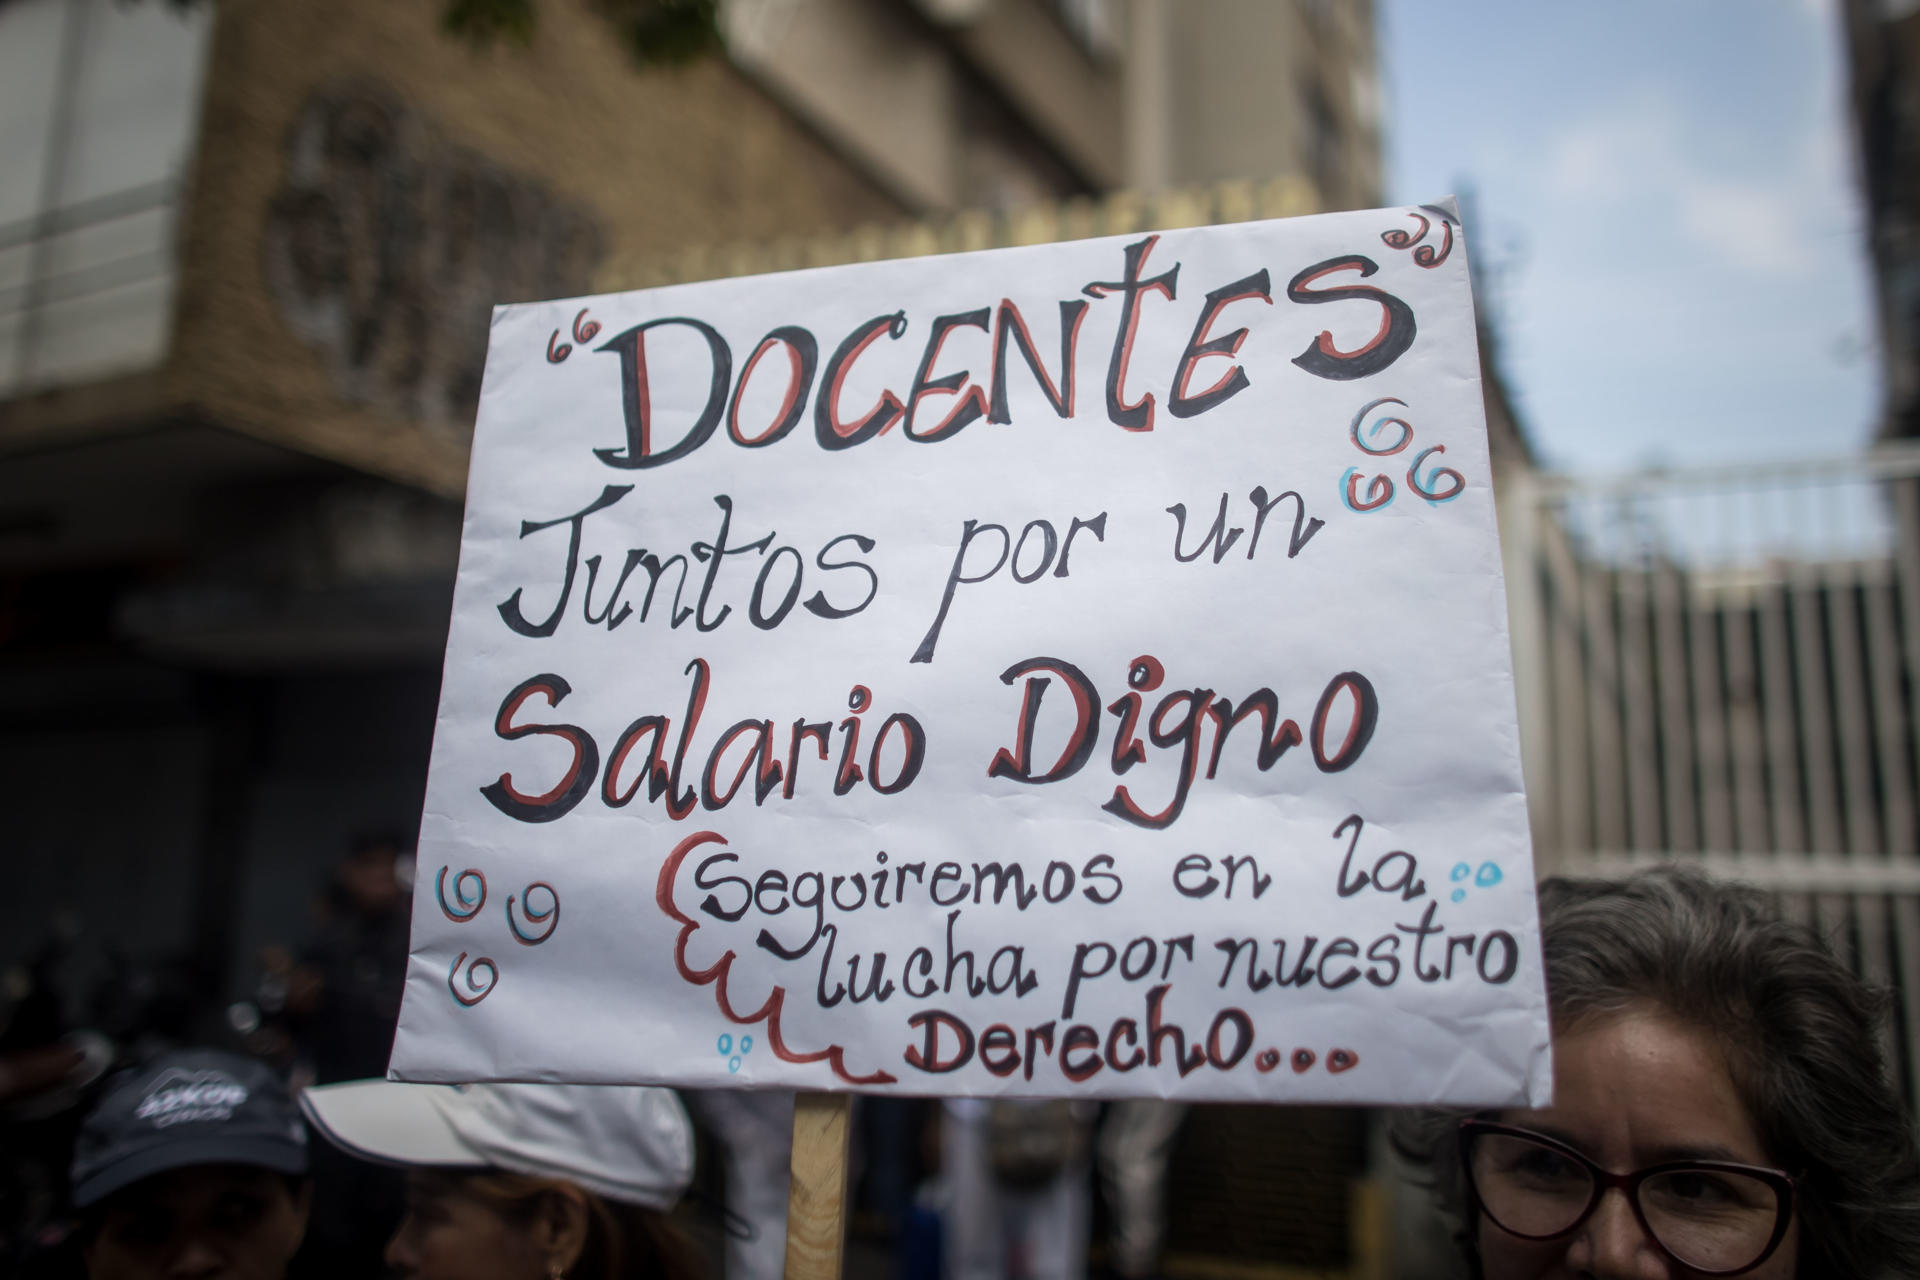 “DOCENtES”
Juntos por un
Salario Digno
Seguiremos en la
lucha por nuestro
Derecho...